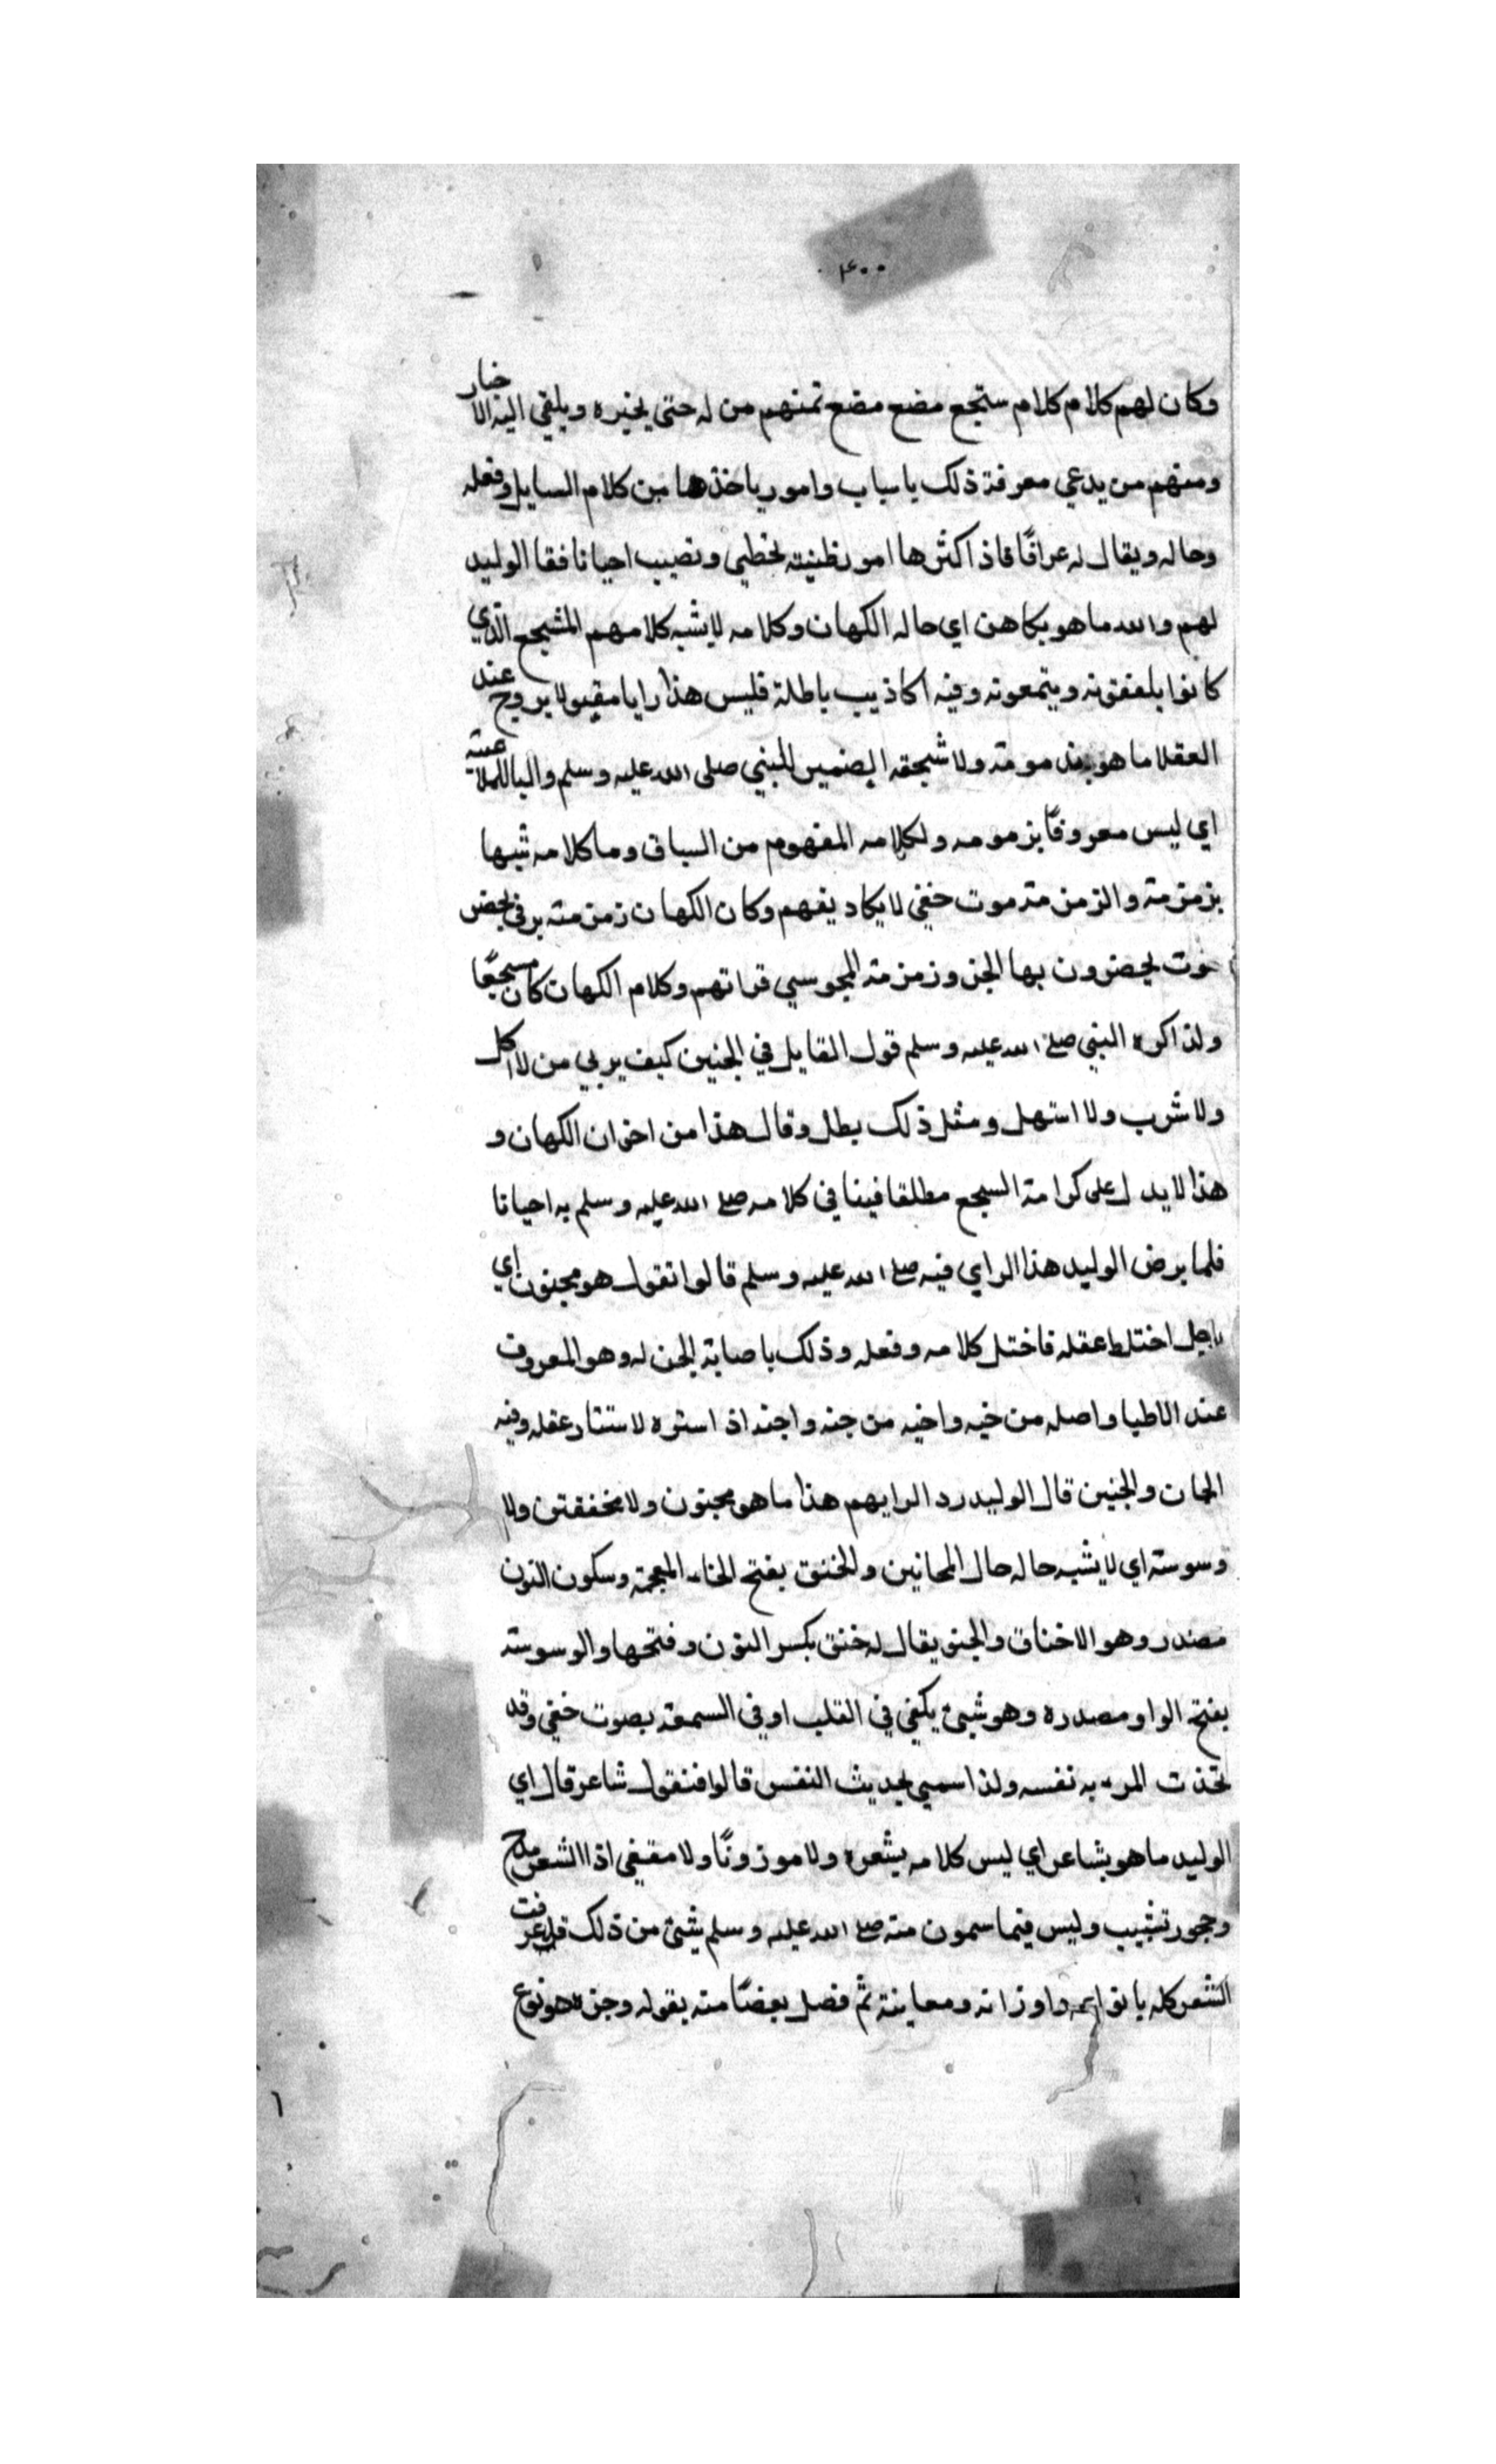 ٤٠٠
وكان لهم كلام كلام ستجع مضع مضع تمنهم من له حتى يخبره ويلقي اليه الاخبار
ومنهم من يدعي معرفة ذلك باسباب وامور ياخذها من كلام السايل وفعله
وحاله ويقال له عرافًا فاذ اكثرها امور ظنيته تخطي وتصيب احيانا فقا الوليد
لهم والله ما هو بكاهن اي حاله الكهان وكلامه لا يشبه كلامهم المشجع الذي
كانوا يلفقونه ويتمعونه وفيه اكاذيب باطلة فليس هذا رايا مقبولا يروج عند
العقلا ما هو بذمومته ولا شجقه الضمير للبني صلى الله عليه وسلم والبا للملا
اي ليس معروفًا بزمومه ولكلامه المفهوم من السباق وما كلامه شبها
بزمزمته والزمزمته موت خفي لا يكاد يفهم وكان الكهان زمزمته بر في بحض
خوت يحضرون بها الجن وزمزمته المجوسي قراتهم وكلام الكهان كان مسجعًا
ولذ اكره البني صلے الله عليه وسلم قول القايل في الجنين كيف يربي من لا اكل
ولا شرب ولا استهل ومثل ذلك بطل وقال هذا من اخوان الكهان و
هذا لا يدل على كرامة السجع مطلقا فينا في كلامه صلے الله عليه وسلم به احيانا
فلما يرض الوليد هذا الراي فيه صلے الله عليه وسلم قالوا نقول هو مجنون اي
باجل اختلط عقله فاختل كلامه وفعله وذلك باصابة الجن له وهو المعروف
عند الاطيا واصله من خيه واخيه من جنه واجنه اذ استره لاستتار عقله وفيه
الجان والجنين قال الوليد رد الرايهم هذا ما هو مجنون ولا مخففتن ولا
وسوسته اي لا يشبه حاله حال المجانين والخنق بفتح الخاء المعجمة وسكون النون
مصدر وهو الاخناق والجنو يقال له خنق بكسر النون وفتحها والوسوسته
بفتح الواو مصدره وهو شيئ يكفي في القلب او في السمعه بصوت خفي وقد
تحذت المرء به نفسه ولذا سمي بحديث النفس قالوا فنقول شاعر قال اي
الوليد ما هو بشاعر اي ليس كلامه يشعره ولا موزونًا ولا مقفي اذ الشعر مدح
وجحور تشبيب وليس فيما سمون منه صلے الله عليه وسلم يشئ من ذلك قد عرفت
الشعر كله بانواعه واوزانه ومعاينة ثم فصل بعضًا منه بقوله وجزه هو نوع